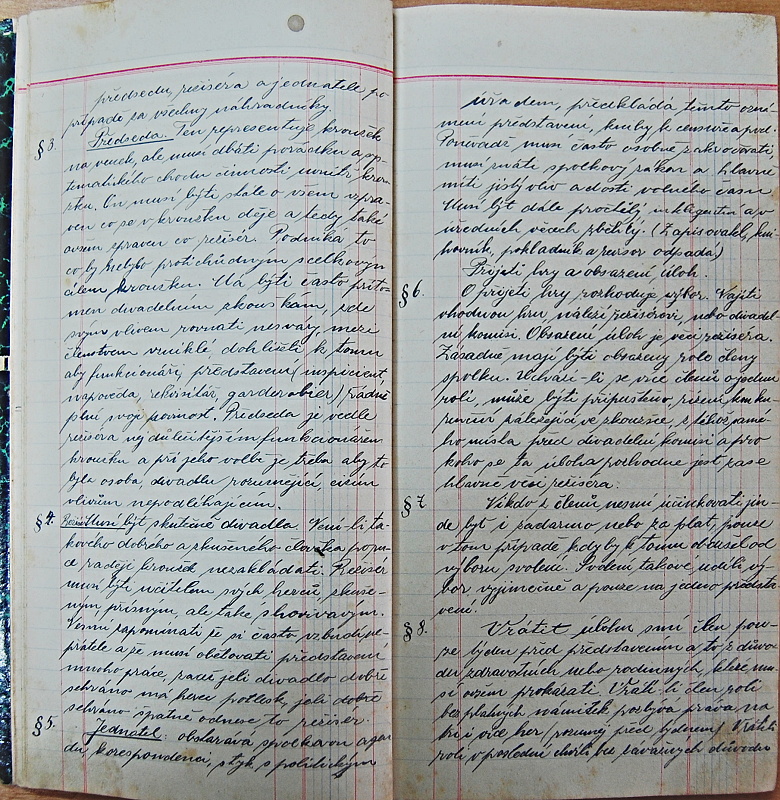 předsedu, režiséra a jednatele, po-
případě za všechny náhradníky.
§ 3. Předseda. Ten representuje kroužek
na venek, ale musí dbáti pořádku a sy-
stematického chodu činnosti uvnitř krou-
žku. On musí býti stále o všem zpra-
ven co se v kroužku děje a tedy také
ovšem zpraven co režisér. Podniká to
co by nebylo protichůdným s celkovým
cílem kroužku. Má býti často příto-
men divadelním zkouškám, zde
svým vlivem rovnati nesváry, mezi
členstvem vzniklé, dohlížeti k tomu
aby funkcionáři představení (inspicient,
nápověda, rekvisitář, garderobier) řádně
plní svoji povinnost. Předseda je vedle
režiséra nejdůležitějším funkcionářem
kroužku a při jeho volbě je třeba aby to
byla osoba, divadlu rozumějící, cizím
vlivům nepodléhajícím.
§ 4. Režisér musí být skutečně divadla. Není-li ta-
kového dobrého a zkušeného člověka popu-
zde raději kroužek nezakládati. Režisér
musí býti učitelem svých herců zkuše-
ným přísným, ale také shovívavým.
Nesmí zapomínati že si často vzbudí ne-
přátele a že musí obětovati představení
mnoho práce, zase jeli divadlo dobře
sehráno má herec potlesk, jeli dobře
sehráno špatně odnese to režisér.
§ 5. Jednatel: obstarává spolkovou agen-
du, korespondenci, styk s politickým
úřadem, předkládá temto ozná-
mení představení, knihy k censuře a pod.
Poněvadž musí často osobně zakročovati
musí znáti spolkový zákon a hlavně
míti jistý vliv a dosti volného času.
Musí být dále pročtělý inteligentní a v
úředních věcech zběhlý. (Zapisovatel, kni-
hovník, pokladník a revisor odpadá)
Přijetí hry a obsazení úloh.
§ 6. O přijetí hry rozhoduje výbor. Najíti
vhodnou hru náleží režisérovi, nebo divadel-
ní komisi. Obsazení úloh je věcí režiséra.
Zásadně mají býti obsazeny role členy
spolku. Uchází-li se více členů o jednu
roli, může býti připuštěno, řízení konku-
renční záležející ve zkoušce, z téhož samé-
ho místa před divadelní komisí a pro
koho se ta úloha rozhodne jest zase
hlavně věcí režiséra.
§ 7. Nikdo z členů nesmí účinkovati jin-
de byť i zadarmo nebo za plat, pouze
v tom případě kdyby k tomu obdržel od
výboru svolení. Svolení takové, udělí vý-
bor vyjímečně a pouze na jedno předsta-
vení.
§ 8. Vrátit úlohu smí člen pou-
ze týden před představením a to z důvo-
du zdravotních nebo rodinných, které mu-
sí ovšem prokázati. Vrátí-li člen roli
bez platných námitek pozbývá práva na
hru i více her, později před týdnem) Vrátiti
roli v poslední chvíli bez závažných důvodů